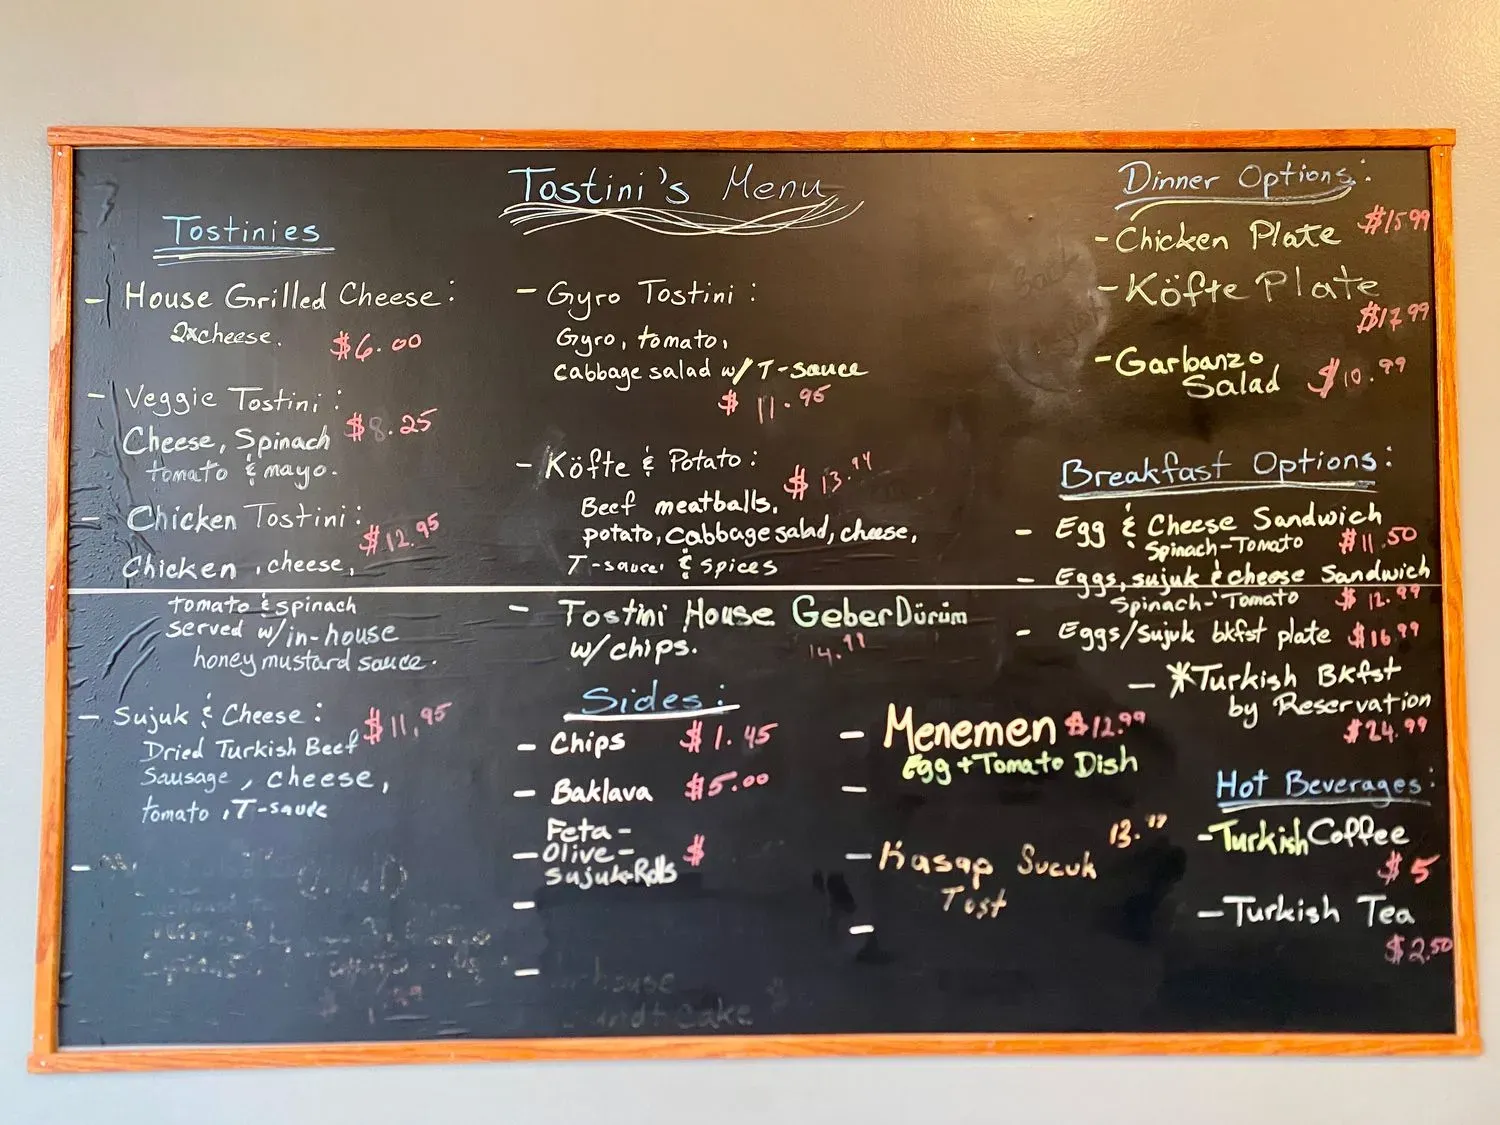 Tostini's Menu
Tostinies
- House Grilled Cheese:
2xcheese. $6.00
- Veggie Tostini:
Cheese, Spinach $8.25
tomato & mayo.
- Chicken Tostini:
$12.95
Chicken, cheese,
tomato & spinach
served w/in-house
honey mustard sauce.
- Sujuk & Cheese:
Dried Turkish Beef $11,95
Sausage, cheese,
tomato, T-sauce
- Gyro Tostini:
Gyro, tomato,
cabbage salad w/ T-sauce
$11.95
- Köfte & Potato:
Beef meatballs,
potato, cabbage salad, cheese,
T-sauce, & spices
- Tostini House Geber Dürüm
w/chips.
Sides:
- Chips $1.45
- Baklava $5.00
Feta-
- Olive- $
Sujuk-Rolls
-
-
cake
- Menemen $12.99
Egg + Tomato Dish
-
13.99
- Kasap Sucuk
Tost
-
Dinner Options:
- Chicken Plate $15.99
- Köfte Plate
$17.99
- Garbanzo
Salad $10.99
Breakfast Options:
- Egg & Cheese Sandwich
Spinach-Tomato $11.50
- Eggs, sujuk & cheese Sandwich
Spinach-Tomato $12.99
- Eggs/Sujuk bkfst plate $16.99
- *Turkish Bkfst
by Reservation
$24.99
Hot Beverages:
- Turkish Coffee
$5
- Turkish Tea
$2.50